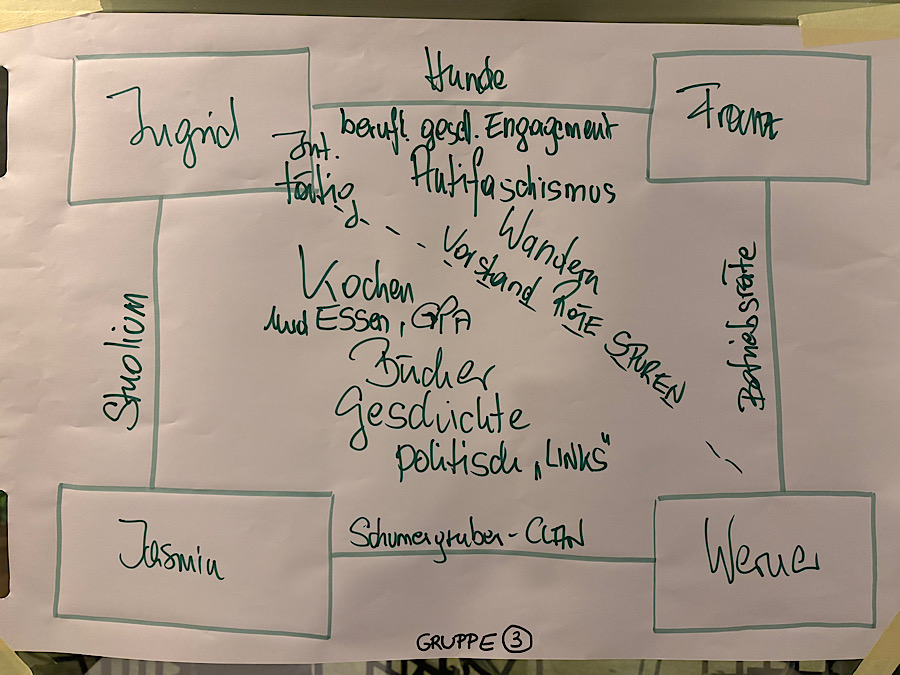 Hunde
Ingrid
Franz
berufl. gesel. Engagement
Int.
tätig
Antifaschismus
Wandern
Vorstand ROTE SPUREN
Kochen
und Essen, GPA
Bücher
Geschichte
politisch „LINKS“
Studium
Betriebsräte
Jasmin
Schumergruber - CLAN
Werner
GRUPPE 3